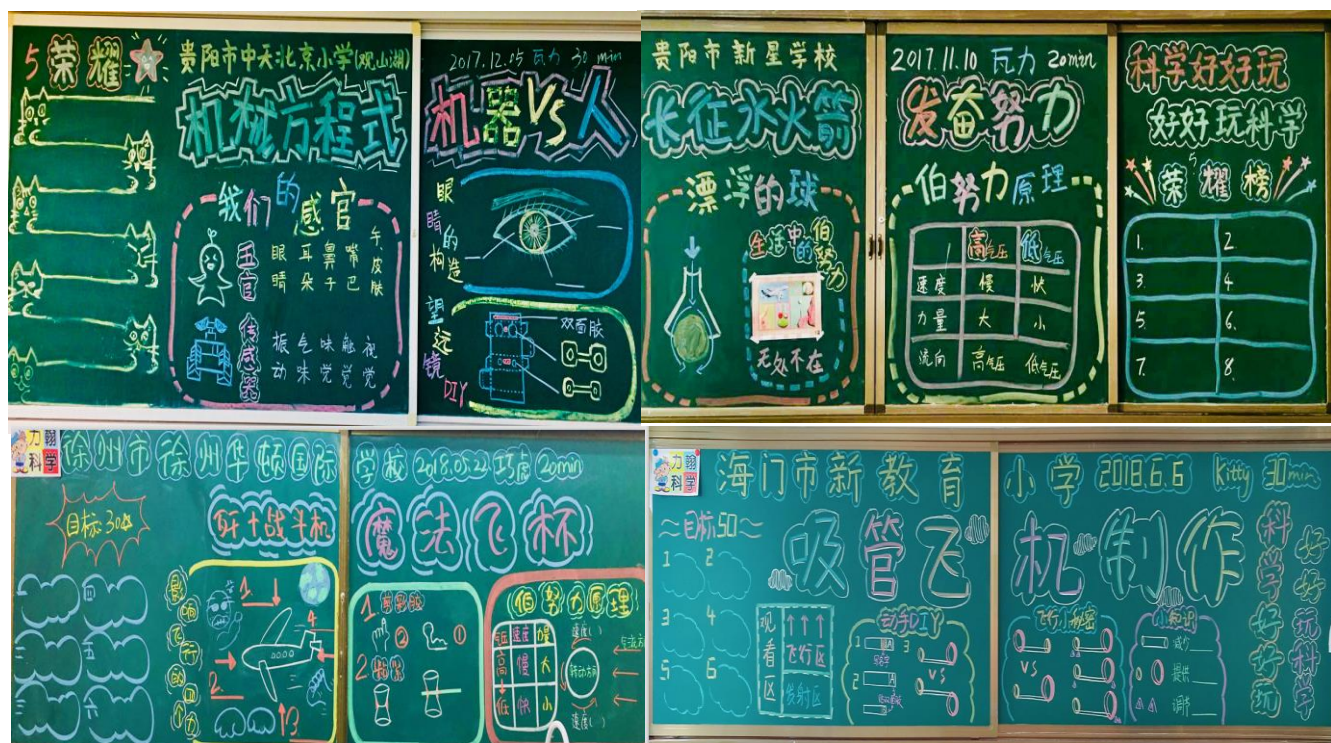 5 荣耀
贵阳市中天北京小学(观山湖)
机械方程式
我们的感官
五官
眼睛 耳朵 鼻子 嘴巴 皮肤
传感器
振动 气味 味觉 触觉 视觉
2017.12.05 瓦力 30 min
机器Vs人
眼睛的构造
望远镜DIY
双面胶
贵阳市新星学校
长征水火箭
漂浮的球
生活中的伯努力
无处不在
2017.11.10 瓦力 20min
发奋努力
伯努力原理
高气压 低气压
速度 慢 快
力量 大 小
流向 高气压 低气压
科学好好玩
好好玩科学
5
荣耀榜
1. 2.
3. 4.
5. 6.
7. 8.
力翰科学
徐州市徐州华顿国际学校 2018.05.22 巧虎 20min
目标30
歼十战斗机
影响飞行的四个力
1.
2.
3
4
四
五
六
魔法飞杯
1
②
①
2
伯努力原理
气压 速度 力量
高 慢 大
低 快 小
速度( )
转动方向
气流方向
速度( )
力翰科学
海门市新教育小学 2018.6.6 Kitty 30min
~目标50~
1 2
3 4
5 6
吸管飞机制作
观看区
飞行区
发射区
动手DIY
1
2
3
VS
飞行小秘密
VS
小知识
减少
提供
调节
科学好好玩
好好玩科学